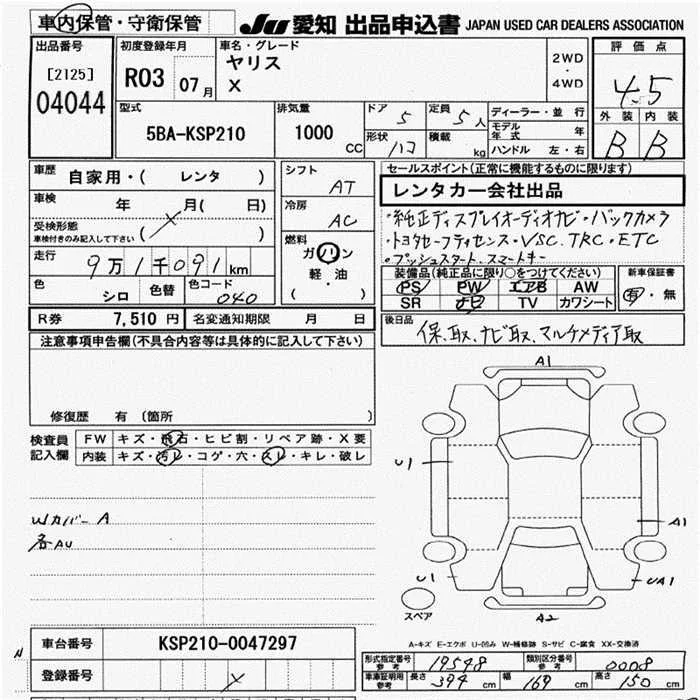 車内保管・守衛保管
JU 愛知 出品申込書 JAPAN USED CAR DEALERS ASSOCIATION
出品番号
[2125]
04044
初度登録年月
R03 07月
車名・グレード
ヤリス
X
2WD
・
4WD
評価点
4.5
外装 内装
B B
型式
5BA-KSP210
排気量
1000 CC
ドア 5
形状 ハコ
定員 5人
積載 kg
ディーラー・並行
モデル年式 年
ハンドル 左・右
車歴 自家用・( レンタ )
車検 年 月( 日)
受検形態
車検付きのみ記入して下さい ( )
走行 9万1千091km
色 シロ 色替 色コード 040
シフト AT
冷房 AC
燃料
ガソリン
軽・油
( )
セールスポイント(正常に機能するものに限ります)
レンタカー会社出品
・純正ディスプレイオーディオナビ・バックカメラ
・トヨタセーフティセンス・VSC.TRC・ETC
・プッシュスタート.スマートキー
装備品(純正品に限り○をつけてください)
PS PW エアB AW
SR ナビ TV カワシート
新車保証書
有・無
R券 7,510円 名変通知期限 月 日
後日品
保.取、ナビ取、マルチメディア取
注意事項申告欄(不具合内容等は具体的に記入して下さい)
修復歴 有(箇所 )
検査員記入欄
FW キズ・飛石・ヒビ割・リペア跡・X要
内装 キズ・汚レ・コゲ・穴・スレ・キレ・破レ
Wカバー A
各AU
A1
U1
A1
U1
UA1
A2
スペア
A-キズ E-エクボ U-凹み W-補修跡 S-サビ C-腐食 XX-交換済
車台番号 KSP210-0047297
登録番号
形式指定番号 参考 19548
類別区分番号 参考 0008
車庫証明用 参考 長さ 394cm 幅 169cm 高さ 150cm